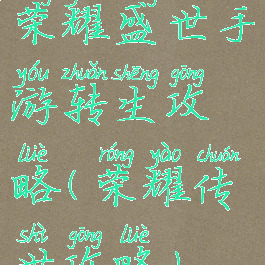 荣耀盛世手
yóu zhuǎn shēng gōng
游转生攻
lüè róng yào chuán
略(荣耀传
shì gōng lüè
世攻略)